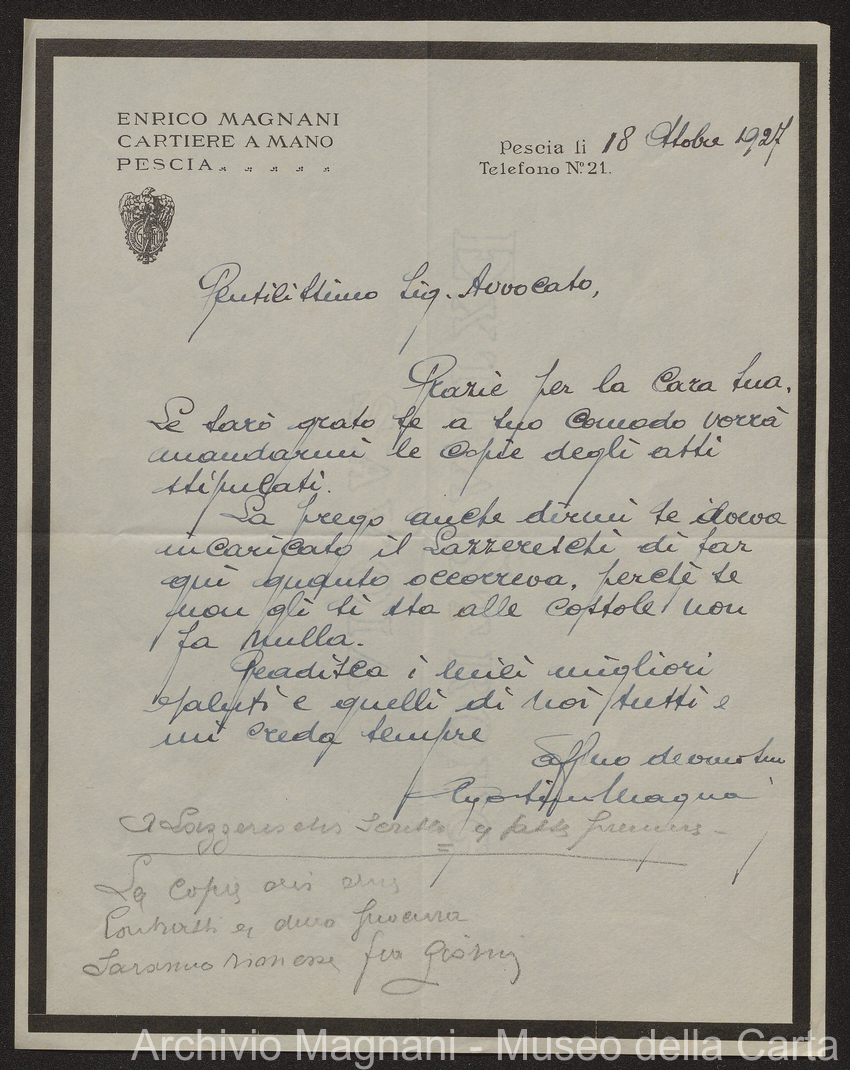 ENRICO MAGNANI
CARTIERE A MANO
PESCIA
Pescia li 18 Ottobre 1927
Telefono Nº 21.
Gentilissimo Sig. Avvocato,
Grazie per la cara sua.
Le sarò grato se a suo comodo vorrà
mandarmi le copie degli atti
stipulati.
La prego anche dirmi se aveva
incaricato il Lazzereschi di far
qui quanto occorreva, perchè se
non gli si sta alle costole non
fa nulla.
Gradisca i miei migliori
saluti e quelli di noi tutti e
mi creda sempre
affmo
Magnani
A Lazzereschi scritto e fatto premure -
La copia dei
Contratti e procura
Saranno rimesse fra giorni
Archivio Magnani - Museo della Carta